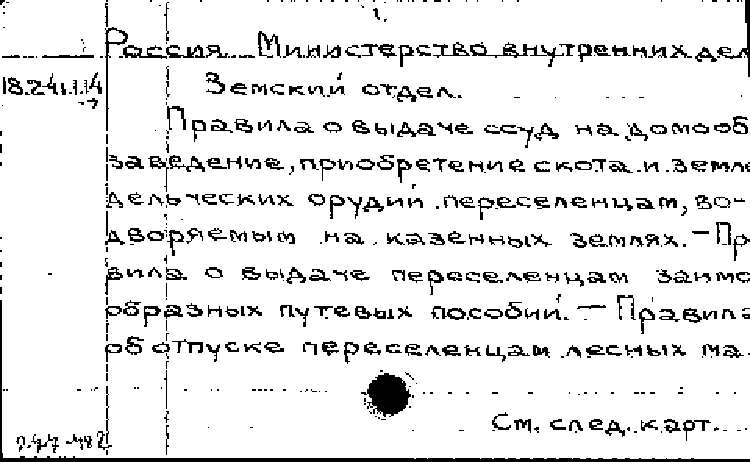 1.
Россия Министерство внутренних дел
18.241.1.14
Земский отдел.
Правила о выдаче ссуд на домооб
заведение, приобретение скота и земле
дельческих орудий переселенцам, во-
дворяемым на казенных землях. — Пра
вила о выдаче переселенцам заимо
образных путевых пособий. — Правила
об отпуске переселенцам лесных ма
См. след. карт.